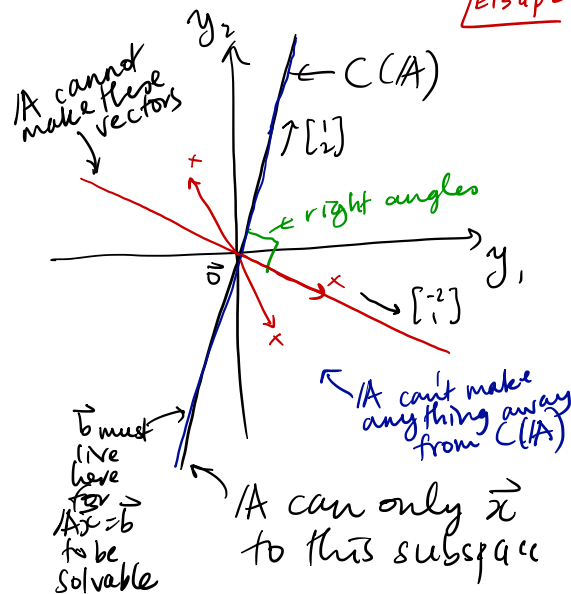 y₂
← C(𝔸)
𝔸 cannot
make these
vectors
↑ [1 2]
x
← right angles
y₁
0⃗
x
↘ [-2 1]
x
𝔸 can't make
anything away
from C(𝔸)
b⃗ must
live
here
for
𝔸x⃗ = b⃗
to be
solvable
𝔸 can only x⃗
to this subspace